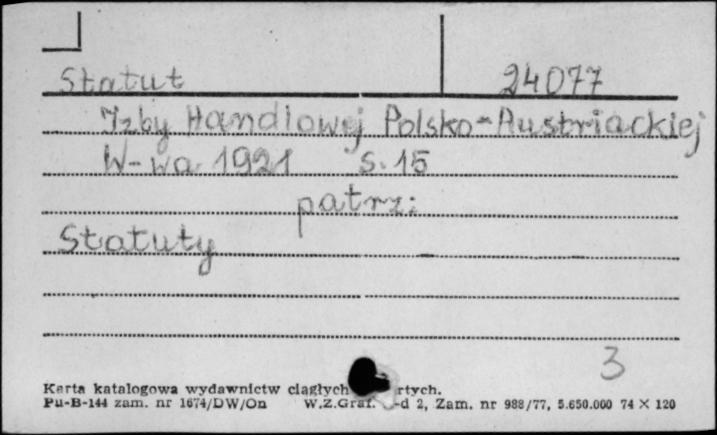 Statut 24077
Izby Handlowej Polsko-Austriackiej
W-wa 1921 s. 15
patrz:
Statuty
3
Karta katalogowa wydawnictw ciągłych rtych.
Pu-B-144 zam. nr 1674/DW/On W.Z.Graf. -d 2, Zam. nr 988/77, 5.650.000 74 X 120